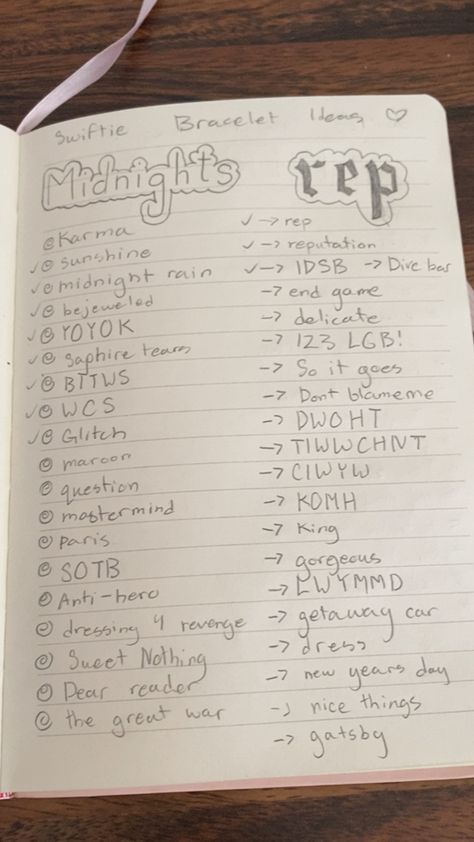 Swiftie Bracelet Ideas ♡
Midnights
@ Karma
✓@ sunshine
✓@ midnight rain
✓@ bejeweled
✓@ YOYOK
✓@ saphire tears
✓@ BTTWS
✓@ WCS
✓@ Glitch
@ maroon
@ question
@ mastermind
@ paris
@ SOTB
@ Anti-hero
@ dressing 4 revenge
@ Sweet Nothing
@ Dear reader
@ the great war
rep
✓ -> rep
✓ -> reputation
✓ -> IDSB -> Dive bar
-> end game
-> delicate
-> 123 LGB!
-> So it goes
-> Dont blame me
-> DWOHT
-> TIWWCHNT
-> CIWYW
-> KOMH
-> King
-> gorgeous
-> LWYMMD
-> getaway car
-> dress
-> new years day
-> nice things
-> gatsby